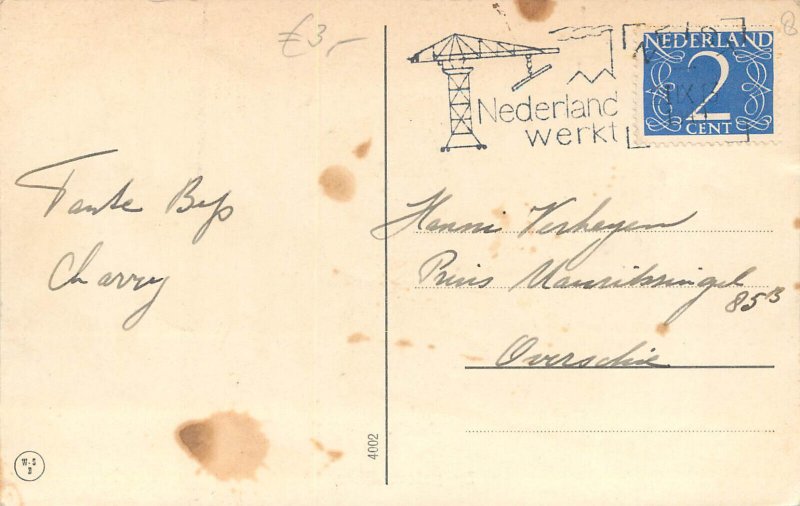 €3,-
8
Nederland
werkt
NEDERLAND
2
CENT
Tante Bep
Charry
Hanni Verheyen
Prins Mauritssingel
85B
Overschie
4002
W.S
B